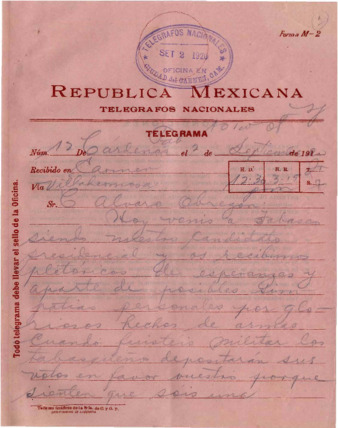 Forma M-2
TELEGRAFOS NACIONALES
SET 2 1920
OFICINA EN
CIUDAD DEL CARMEN, CAM.
REPUBLICA MEXICANA
TELEGRAFOS NACIONALES
TELEGRAMA
Núm 12 De Cárdenas el 2 de Septiembre 191
Recibido en Carmen
H. D. H. R.
Vía Villahermosa 12.30
Sr. C Alvaro Obregón
Hoy venis a Tabasco
siendo nuestro candidato
presidencial y os recibimos
pletoricos de esperanzas y
aparte de posibles sim
patias personales por glo-
riosos hechos de armas.
Cuando fuisteis militar los
tabasqueños depositarán sus
votos en favor vuestro porque
sienten que sois una
Todo telegrama debe llevar el sello de la Oficina.